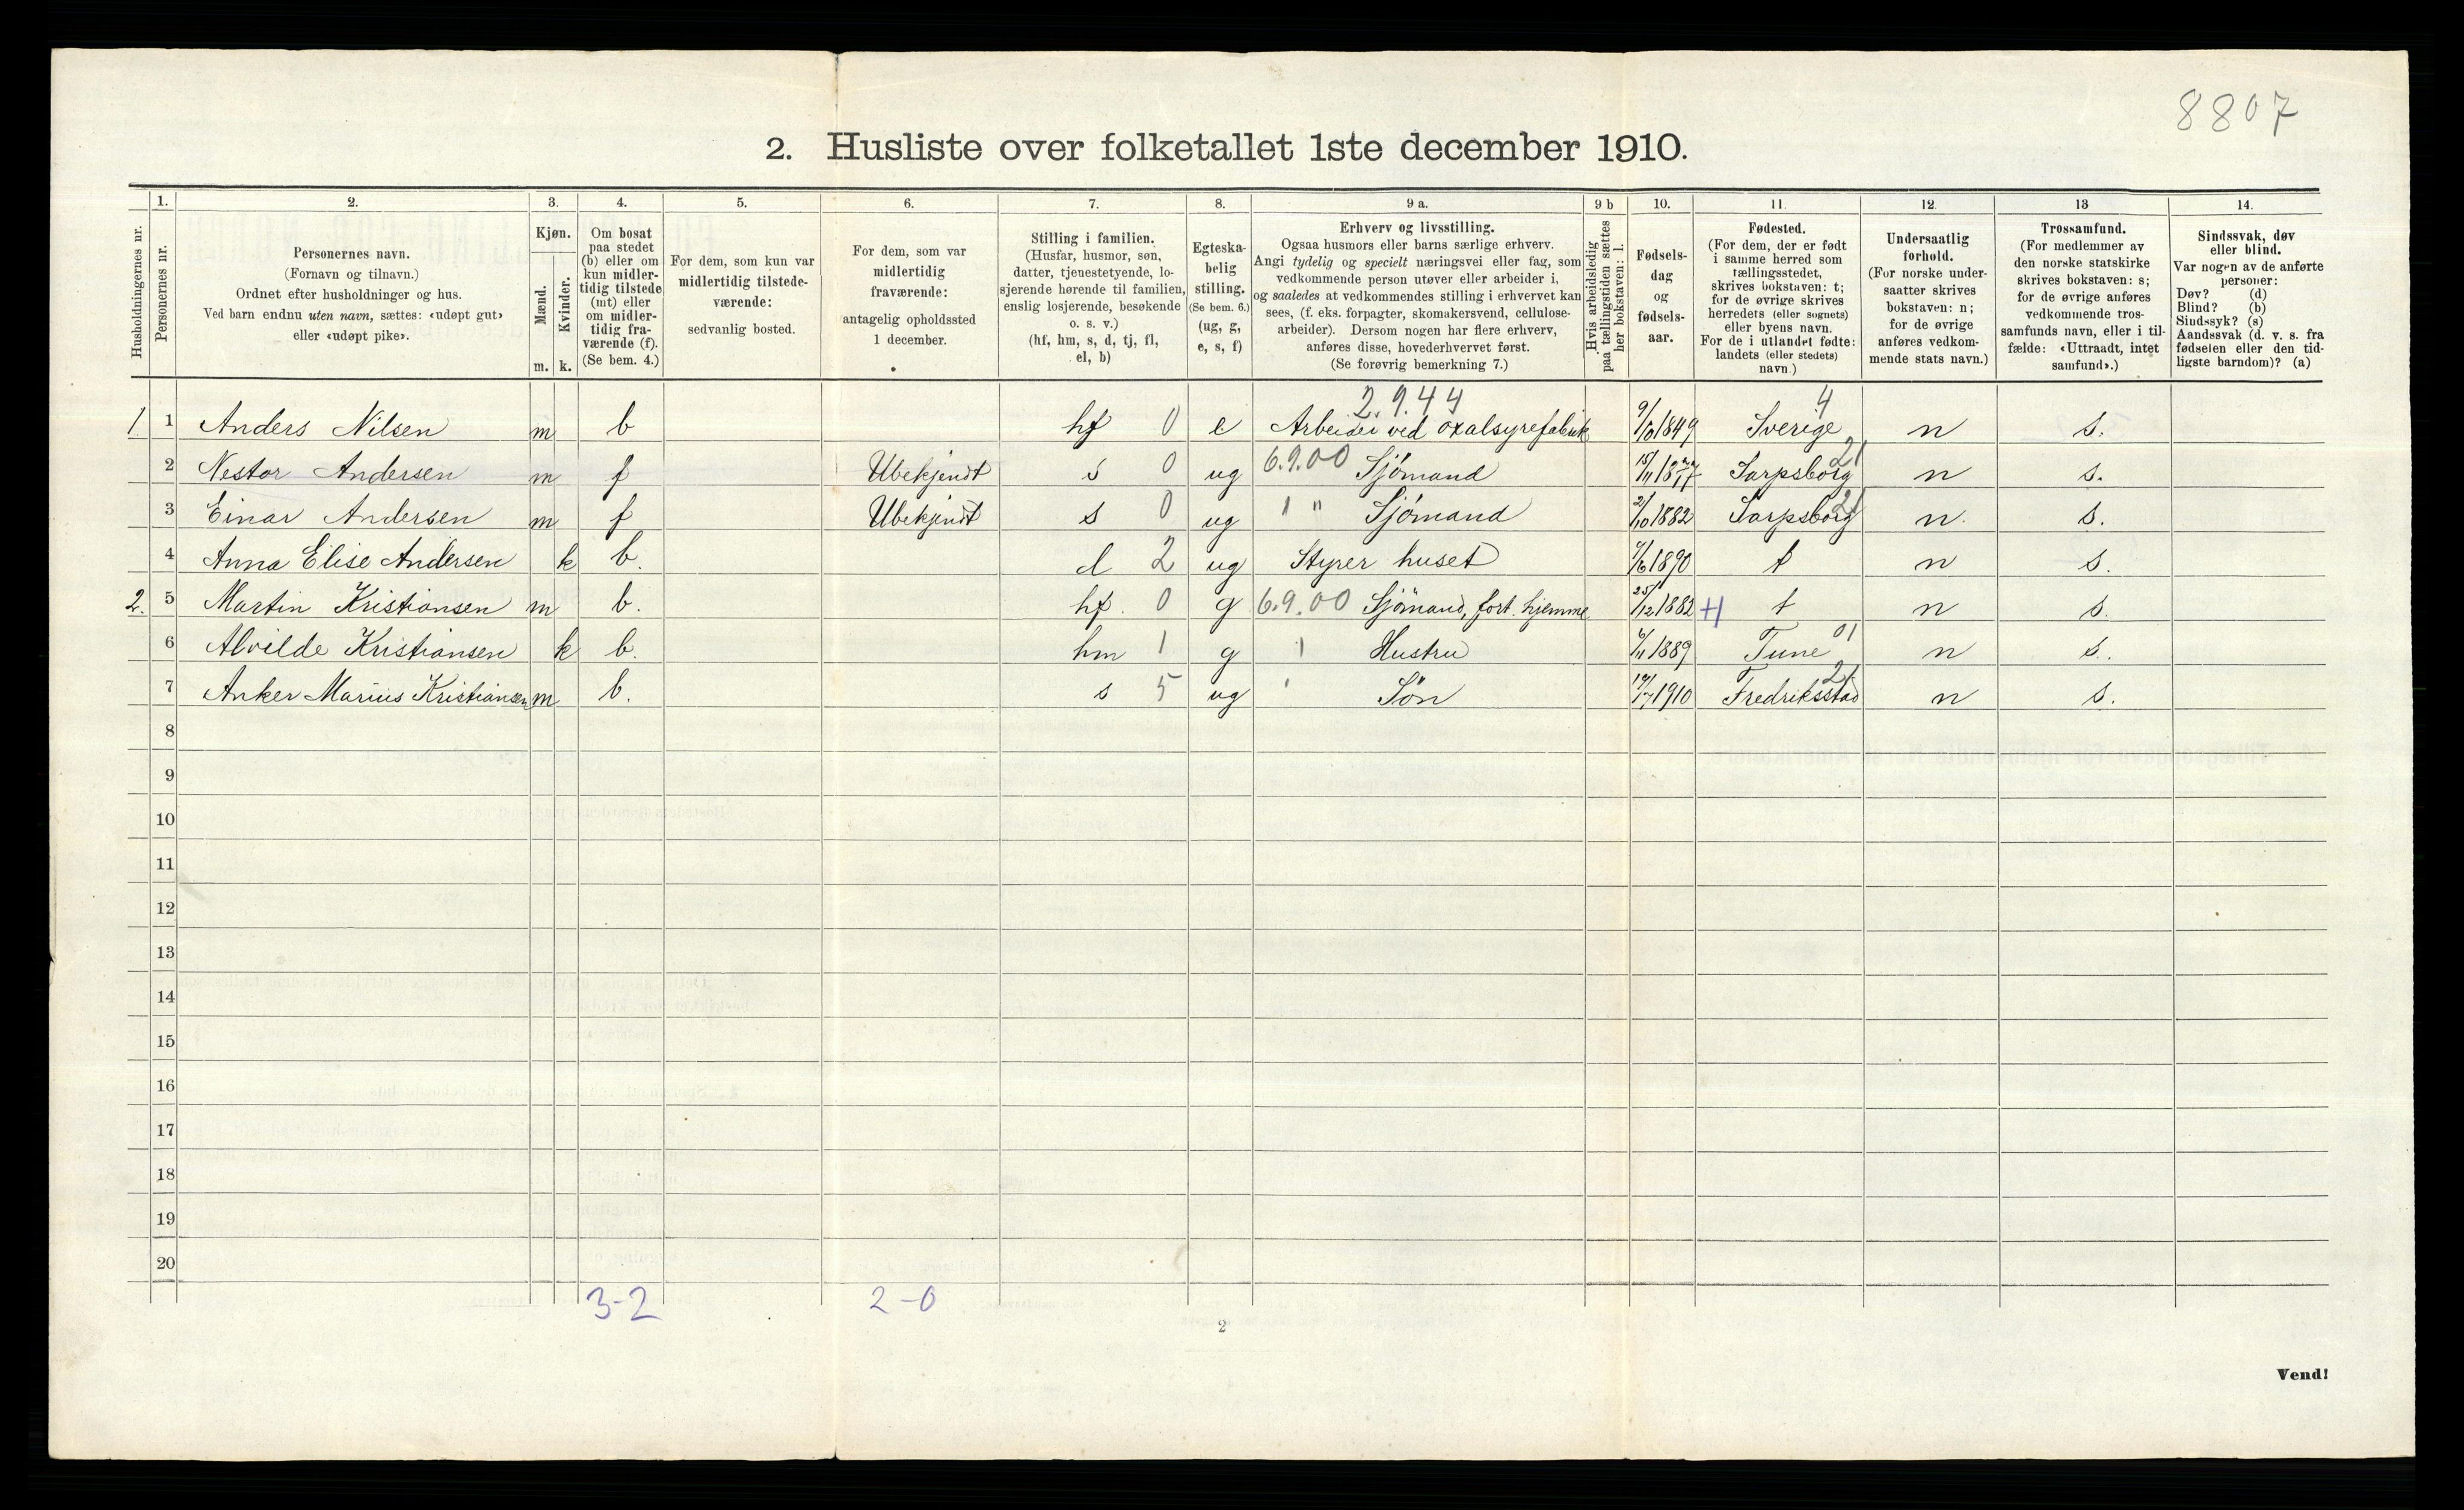 8807
2. Husliste over folketallet 1ste december 1910.
Husholdningernes nr.
1.
Personernes nr.
2.
Personernes navn.
(Fornavn og tilnavn.)
Ordnet efter husholdninger og hus.
Ved barn endnu uten navn, sættes: «udøpt gut»
eller «udøpt pike».
3.
Kjøn.
Mænd.
Kvinder.
m. k.
4.
Om bosat
paa stedet
(b) eller om
kun midler-
tidig tilstede
(mt) eller
om midler-
tidig fra-
værende (f).
(Se bem. 4.)
5.
For dem, som kun var
midlertidig tilstede-
værende:
sedvanlig bosted.
6.
For dem, som var
midlertidig
fraværende:
antagelig opholdssted
1 december.
7.
Stilling i familien.
(Husfar, husmor, søn,
datter, tjenestetyende, lo-
sjerende hørende til familien,
enslig losjerende, besøkende
o. s. v.)
(hf, hm, s, d, tj, fl,
el, b)
8.
Egteska-
belig
stilling.
(Se bem. 6.)
(ug, g,
e, s, f)
9 a.
Erhverv og livsstilling.
Ogsaa husmors eller barns særlige erhverv.
Angi tydelig og specielt næringsvei eller fag, som
vedkommende person utøver eller arbeider i,
og saaledes at vedkommendes stilling i erhvervet kan
sees, (f. eks. forpagter, skomakersvend, cellulose-
arbeider). Dersom nogen har flere erhverv,
anføres disse, hovederhvervet først.
(Se forøvrig bemerkning 7.)
9 b
Hvis arbeidsledig
paa tællingstiden sættes
her bokstaven: l.
10.
Fødsels-
dag
og
fødsels-
aar.
11.
Fødested.
(For dem, der er født
i samme herred som
tællingsstedet,
skrives bokstaven: t;
for de øvrige skrives
herredets (eller sognets)
eller byens navn.
For de i utlandet fødte:
landets (eller stedets)
navn.)
12.
Undersaatlig
forhold.
(For norske under-
saatter skrives
bokstaven: n;
for de øvrige
anføres vedkom-
mende stats navn.)
13
Trossamfund.
(For medlemmer av
den norske statskirke
skrives bokstaven: s;
for de øvrige anføres
vedkommende tros-
samfunds navn, eller i til-
fælde: «Uttraadt, intet
samfund».)
14.
Sindssvak, døv
eller blind.
Var nogen av de anførte
personer:
Døv? (d)
Blind? (b)
Sindssyk? (s)
Aandssvak (d. v. s. fra
fødselen eller den tid-
ligste barndom)? (a)
2.9.44 4
1 1 Anders Nilsen m b hf 0 e Arbeider ved oxalsyrefabrik 1849 Sverige n s.
2 Nestor Andersen m f Ubekjendt s 0 ug 6.9.00 Sjömand 15/11 1877 Sarpsborg 21 n s.
3 Einar Andersen m f Ubekjendt s 0 ug 1 " Sjömand 2/10 1882 Sarpsborg 21 n. s.
4 Anna Elise Andersen k b. d 2 ug Styrer huset 1890 t n s.
2. 5 Martin Kristiansen m b. hf. 0 g 6.9.00 Sjömand, fort. hjemme 25/12 1882 t n s.
6 Alvilde Kristiansen k b. hm 1 g 1 Hustru 6/11 1889 Tune 01 n s.
7 Anker Marius Kristiansen m b. s 5 ug ' Søn 1910 Fredriksstad 21 n s.
8
9
10
11
12
13
14
15
16
17
18
19
20
3-2 2-0
2
Vend!